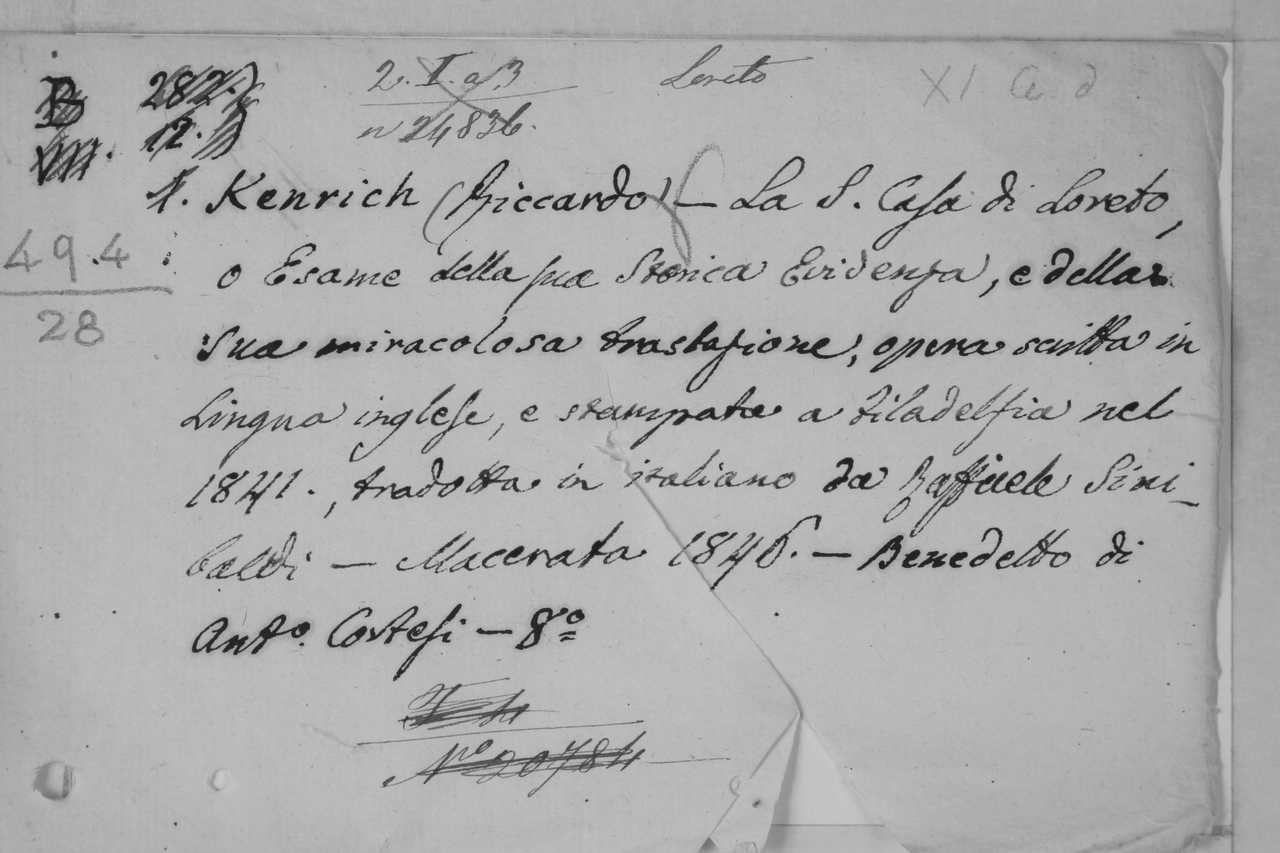 B 282. 2. I. a. 3 Loreto XI C. d
VIII. 12. n 24836.
1. Kenrich (Riccardo) — La S. Casa di Loreto,
49.4
28
o Esame della sua Storica Evidenza, e della
sua miracolosa traslazione, opera scritta in
Lingua inglese, e stampata a Filadelfia nel
1841., tradotta in italiano da Raffaele Sini-
baldi — Macerata 1846. — Benedetto di
Ant.o Cortesi — 8.o
N.o 20784